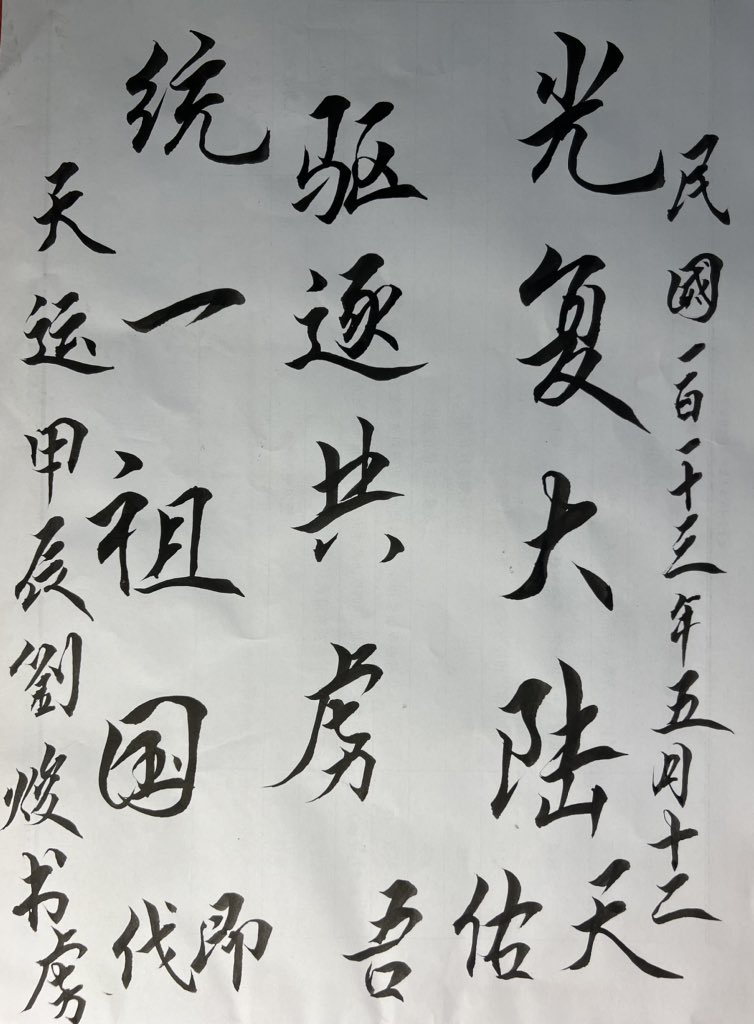 民國一百一十三年五月十二
光复大陆
驱逐共虏
统一祖国
天佑吾即代
天运甲辰劉焌书虏